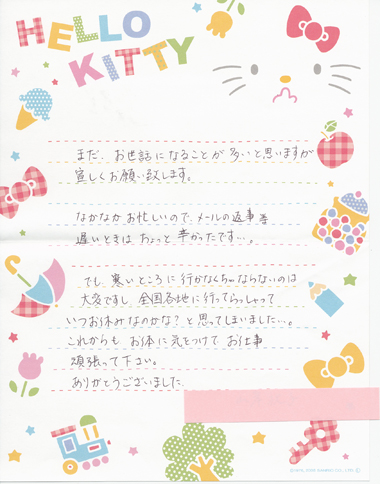 HELLO
KITTY
まだ、お世話になることが多いと思いますが
宜しくお願い致します。
なかなかお忙しいので、メールの返事等
遅いときはちょっと辛かったです…。
でも寒いところに行かなくちゃならないのは
大変ですし、全国各地に行ってらっしゃって
いつお休みなのかな?と思ってしまいました…。
これからもお体に気をつけてお仕事
頑張って下さい。
ありがとうございました